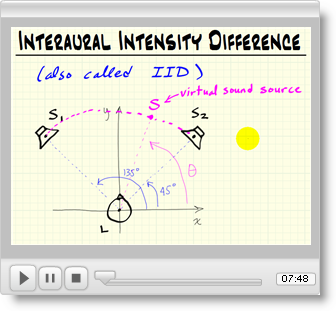 INTERAURAL INTENSITY DIFFERENCE
(also called IID)
S virtual sound source
S1
y
S2
135°
θ
45°
L
x
07:48